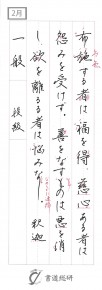 2月
布施する者は福を得、慈心ある者は
怨みを受けず。善をなすものは悪を消
し、欲を離るる者は悩みなし。 釈迦
一般 段級
書道総研